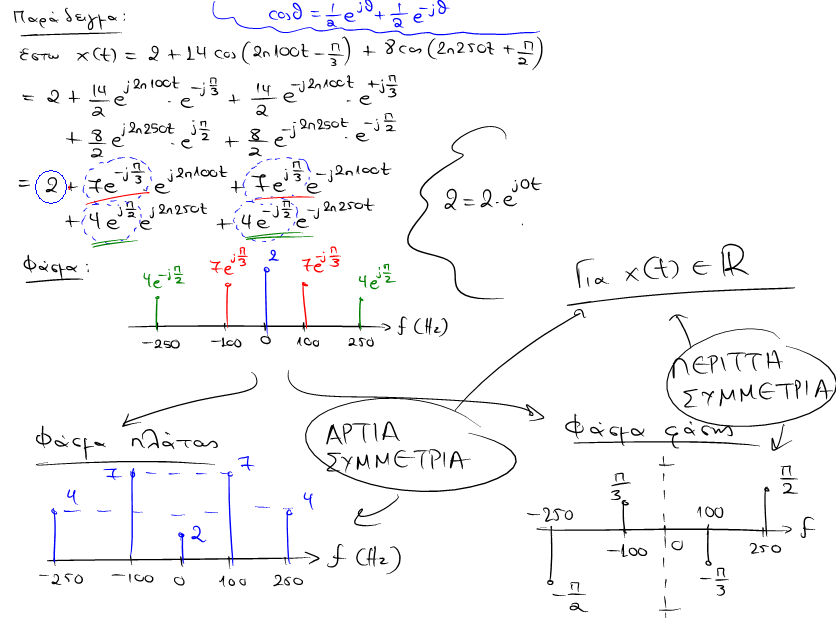 Παράδειγμα:
cosθ = 1/2 e^{jθ} + 1/2 e^{-jθ}
Έστω x(t) = 2 + 14 cos(2π100t - π/3) + 8cos(2π250t + π/2)
= 2 + 14/2 e^{j2π100t} · e^{-jπ/3} + 14/2 e^{-j2π100t} · e^{+jπ/3}
+ 8/2 e^{j2π250t} · e^{jπ/2} + 8/2 e^{-j2π250t} · e^{-jπ/2}
= 2 + 7e^{-jπ/3} e^{j2π100t} + 7e^{jπ/3} e^{-j2π100t}
+ 4e^{jπ/2} e^{j2π250t} + 4e^{-jπ/2} e^{-j2π250t}
2 = 2·e^{j0t}
Φάσμα:
4e^{-jπ/2} 7e^{jπ/3} 2 7e^{-jπ/3} 4e^{jπ/2}
-250 -100 0 100 250 f (Hz)
Για x(t) ∈ ℝ
ΠΕΡΙΤΤΗ
ΣΥΜΜΕΤΡΙΑ
ΑΡΤΙΑ
ΣΥΜΜΕΤΡΙΑ
Φάσμα πλάτους
4 7 2 7 4
-250 -100 0 100 250 f (Hz)
Φάσμα φάσης
π/3 π/2
-250 -100 0 100 250 f
-π/2 -π/3